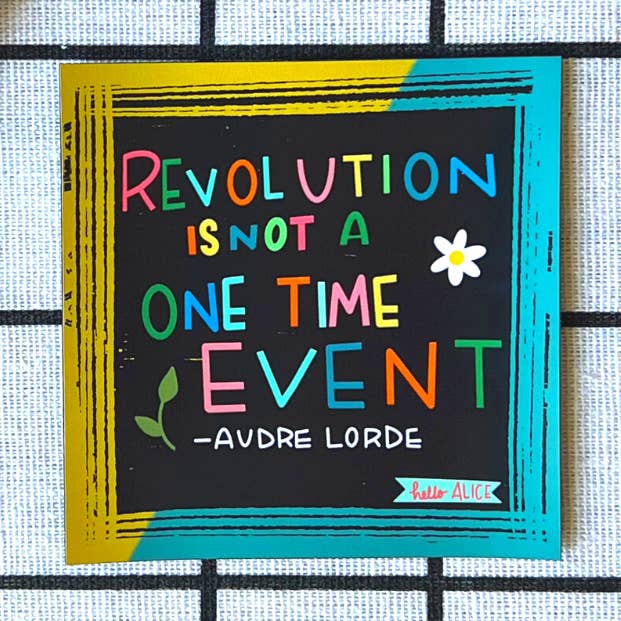 REVOLUTION
IS NOT A
ONE TIME
EVENT
–AUDRE LORDE
hello ALICE